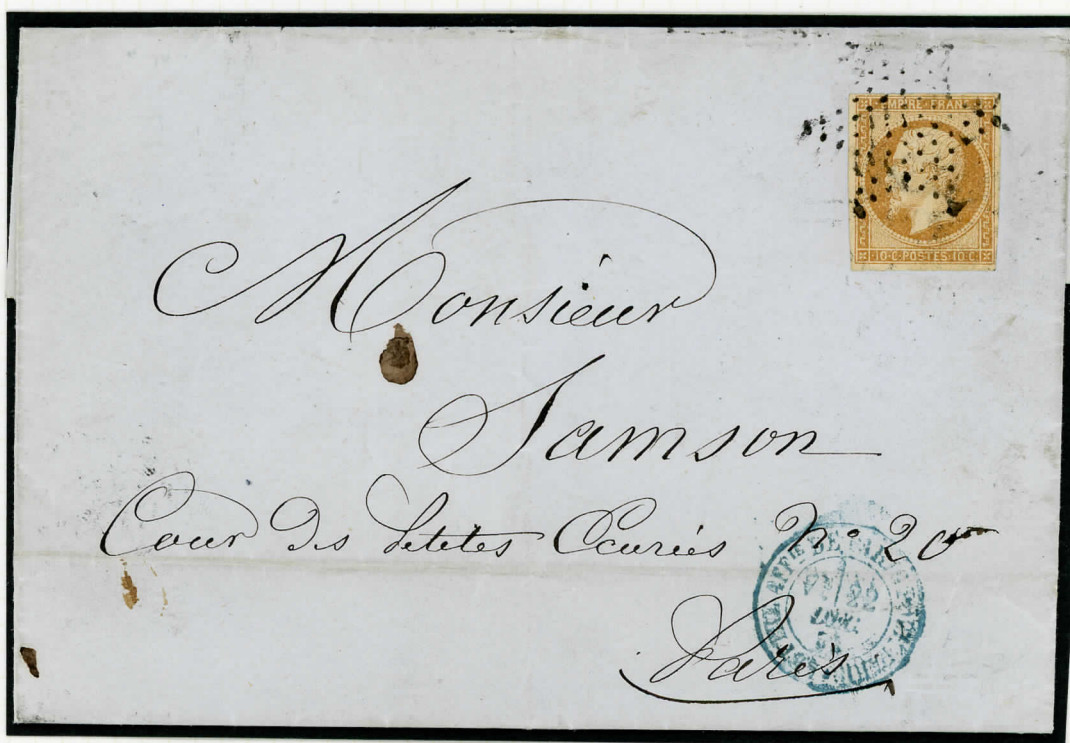 EMPIRE FRANC
10·C·POSTES·10·C
Monsieur
Samson
Cour des Petites Ecuries No 20
Paris
22